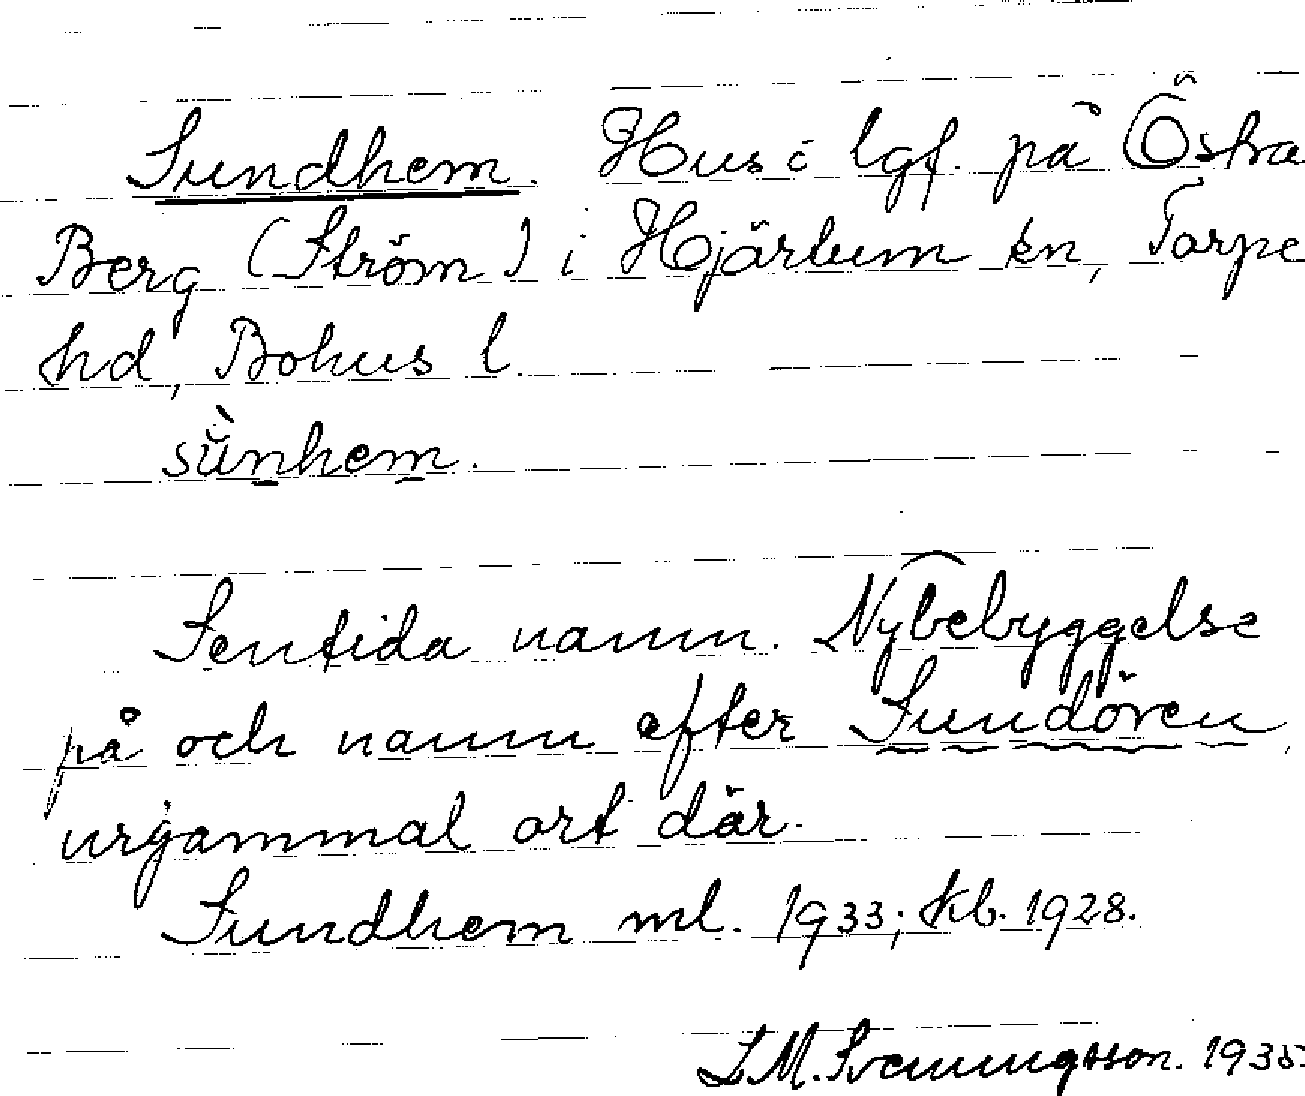 Sundhem. Hus i lgf. på Östra
Berg (Ström) i Hjärtum sn, Torpe
hd, Bohus l.
sŭ̀nhem.
Sentida namn. Nybebyggelse
på och namn efter Sundören,
urgammal ort där.
Sundhem ml. 1933; kb. 1928.
L.M. Svenungsson. 1935.